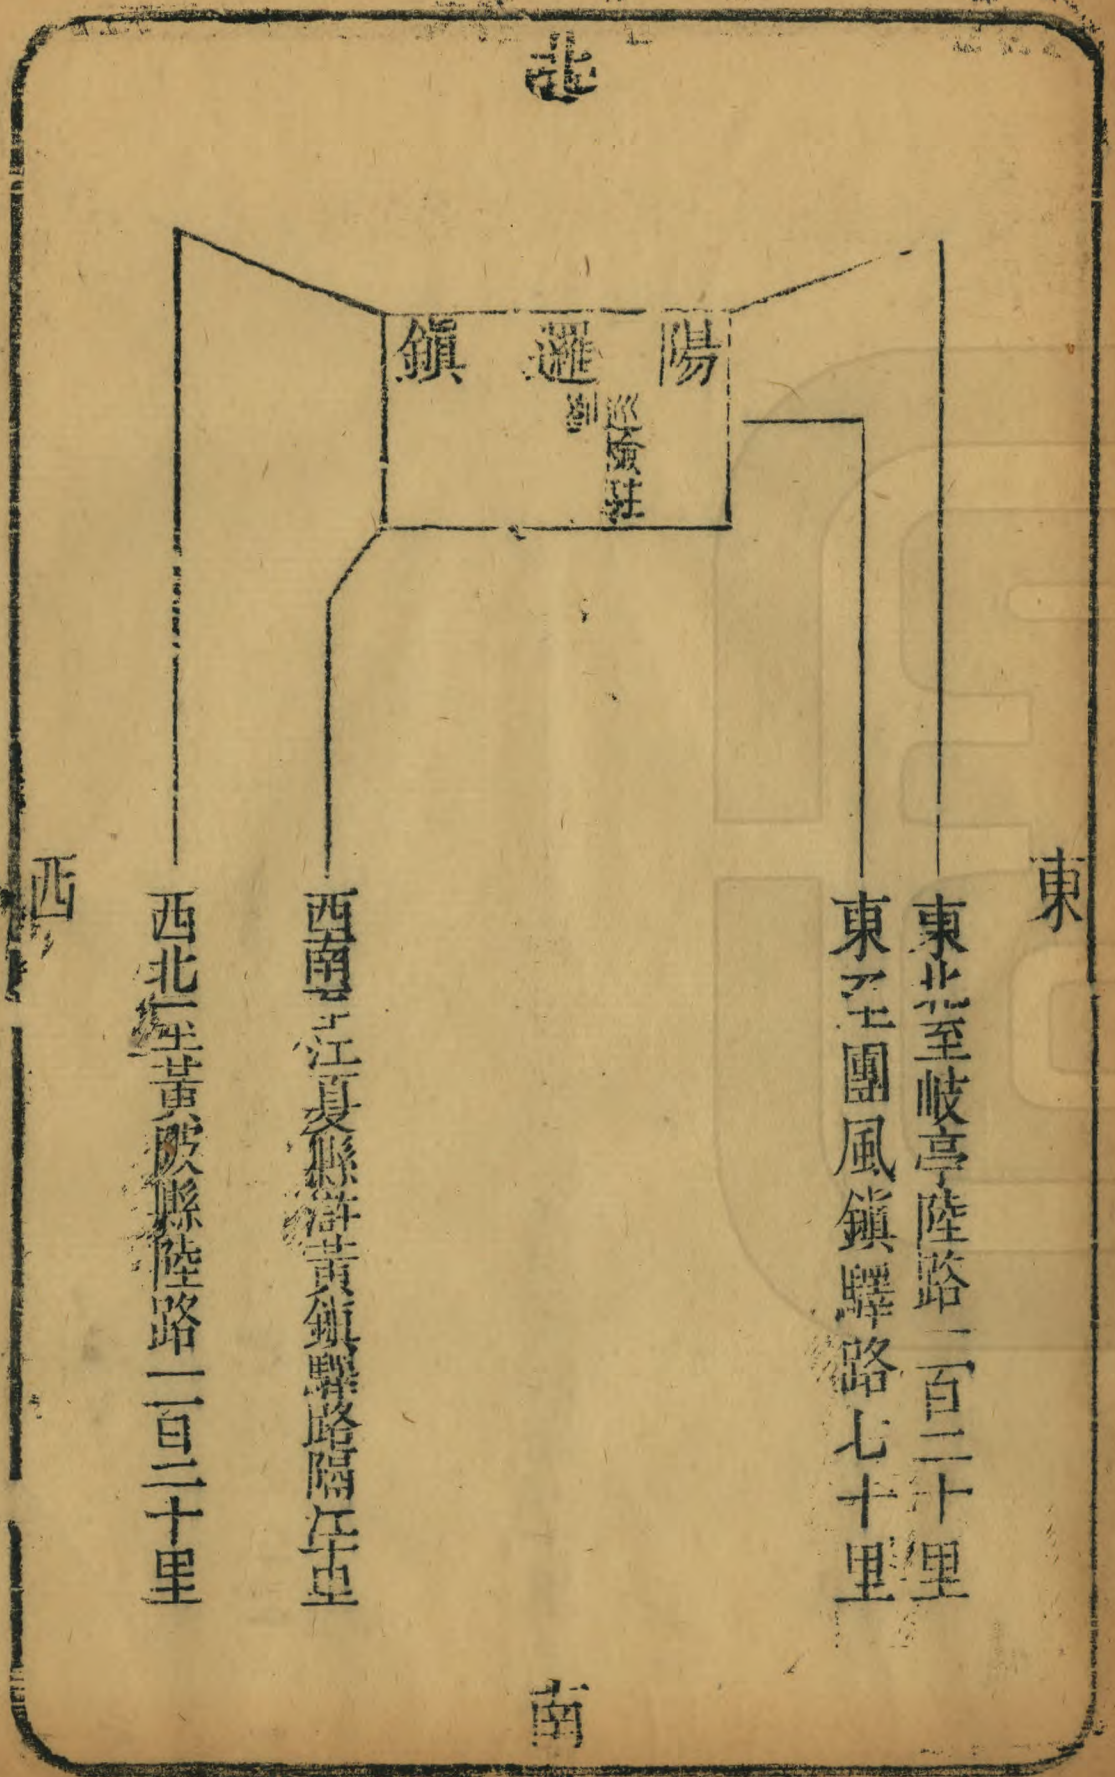 北
陽邏鎮
巡檢駐劄
東
東北至岐亭陸路一百二十里
東至團風鎮驛路七十里
西南至江夏縣滸黃鎮驛路隔江十里
西北至黃陂縣陸路一百二十里
西
南